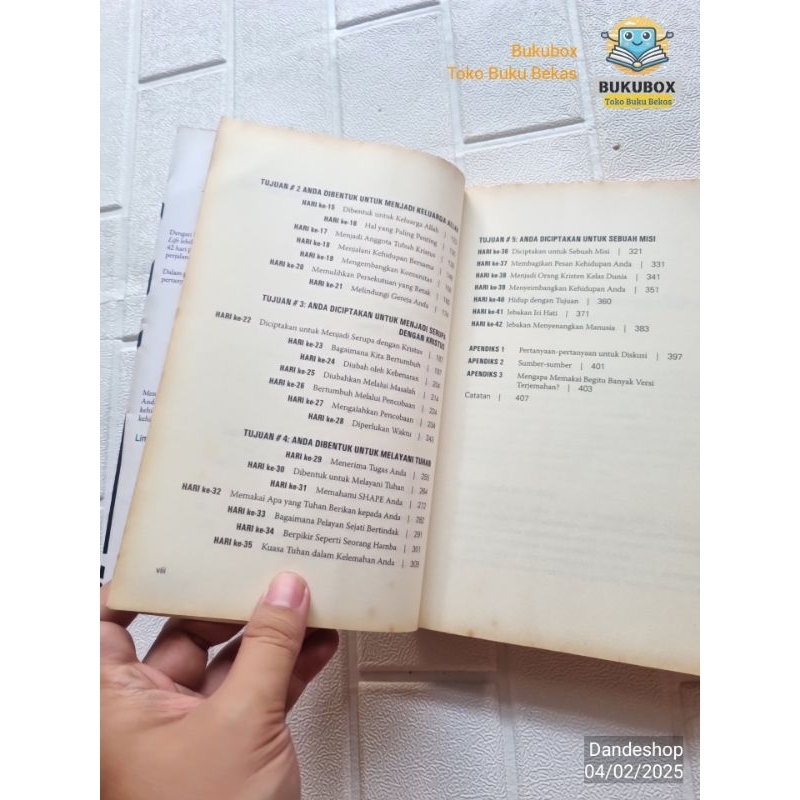 Bukubox
Toko Buku Bekas
BUKUBOX
Toko Buku Bekas
Life
42 hari
TUJUAN # 2 ANDA DIBENTUK UNTUK MENJADI KELUARGA ALLAH
HARI ke-15 Dibentuk untuk Keluarga Allah |
HARI ke-16 Hal yang Paling Penting |
HARI ke-17 Menjadi Anggota Tubuh Kristus |
HARI ke-18 Menjalani Kehidupan Bersama |
HARI ke-19 Mengembangkan Komunitas |
HARI ke-20 Memulihkan Persekutuan yang Retak |
HARI ke-21 Melindungi Gereja Anda |
TUJUAN # 3: ANDA DICIPTAKAN UNTUK MENJADI SERUPA
DENGAN KRISTUS
HARI ke-22 Diciptakan untuk Menjadi Serupa dengan Kristus | 187
HARI ke-23 Bagaimana Kita Bertumbuh | 197
HARI ke-24 Diubah oleh Kebenaran |
HARI ke-25 Diubahkan Melalui Masalah | 214
HARI ke-26 Bertumbuh Melalui Pencobaan |
HARI ke-27 Mengalahkan Pencobaan | 234
HARI ke-28 Diperlukan Waktu | 243
TUJUAN # 4: ANDA DIBENTUK UNTUK MELAYANI TUHAN
HARI ke-29 Menerima Tugas Anda | 255
HARI ke-30 Dibentuk untuk Melayani Tuhan | 264
HARI ke-31 Memahami SHAPE Anda | 272
HARI ke-32 Memakai Apa yang Tuhan Berikan kepada Anda | 282
HARI ke-33 Bagaimana Pelayan Sejati Bertindak | 291
HARI ke-34 Berpikir Seperti Seorang Hamba | 301
HARI ke-35 Kuasa Tuhan dalam Kelemahan Anda | 309
viii
TUJUAN # 5: ANDA DICIPTAKAN UNTUK SEBUAH MISI
HARI ke-36 Diciptakan untuk Sebuah Misi | 321
HARI ke-37 Membagikan Pesan Kehidupan Anda | 331
HARI ke-38 Menjadi Orang Kristen Kelas Dunia | 341
HARI ke-39 Menyeimbangkan Kehidupan Anda | 351
HARI ke-40 Hidup dengan Tujuan | 360
HARI ke-41 Jebakan Iri Hati | 371
HARI ke-42 Jebakan Menyenangkan Manusia | 383
APENDIKS 1 Pertanyaan-pertanyaan untuk Diskusi | 397
APENDIKS 2 Sumber-sumber | 401
APENDIKS 3 Mengapa Memakai Begitu Banyak Versi
Terjemahan? | 403
Catatan | 407
Dandeshop
04/02/2025